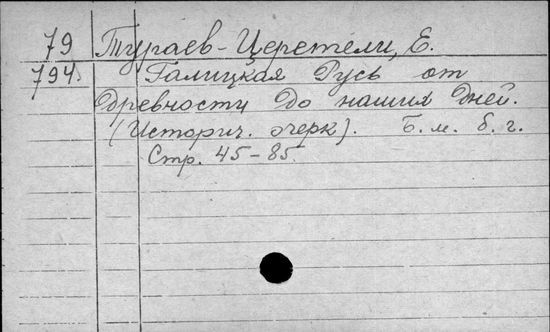 79 Тураев-Церетели, Е.
794 Галицкая Русь от
древности до наших дней.
(Историч. очерк). Б. м. б. г.
Стр. 45-85.